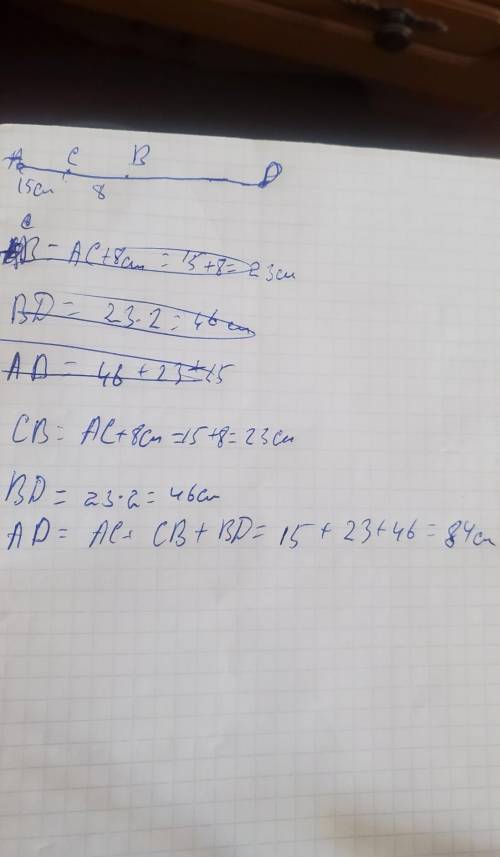 A C B D
15см 8
CB = AC+8см = 15+8= 23см
BD = 23·2 = 46см
AD = 46 + 23 + 15
CB = AC+8см =15+8= 23см
BD = 23·2 = 46см
AD = AC+ CB + BD= 15 + 23+46 = 84см